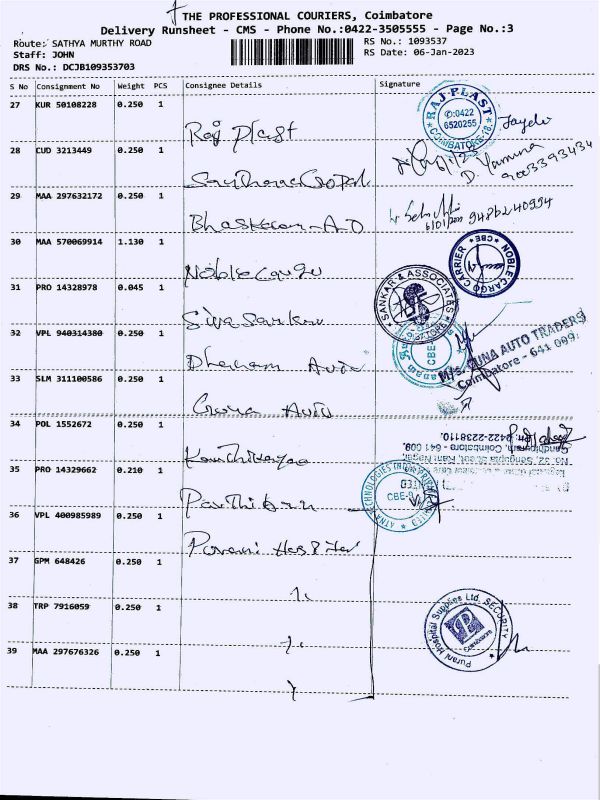 THE PROFESSIONAL COURIERS, Coimbatore
Delivery Runsheet - CMS - Phone No.:0422-3505555 - Page No.:3
Route: SATHYA MURTHY ROAD
RS No.: 1093537
Staff: JOHN
RS Date: 06-Jan-2023
DRS No.: DCJB109353703
S No Consignment No Weight PCS Consignee Details Signature
27 KUR 50108228 0.250 1
Raj Plast
RAJ-PLAST
✆:0422
6520255
COIMBATORE-18
28 CUD 3213449 0.250 1
D. Yamuna
9003393434
29 MAA 297632172 0.250 1
Bhaskaran-AD
9486240994
30 MAA 570069914 1.130 1
Noble Cargo
NOBLE CARGO CARRIER
CBE
31 PRO 14328978 0.045 1
Siva Sankar
SANKAR & ASSOCIATES
32 VPL 940314380 0.250 1
CBE
33 SLM 311100586 0.250 1
Guna Auto
M/s. GUNA AUTO TRADERS
Coimbatore - 641 009.
34 POL 1552672 0.250 1
Ph: 0422-2238110.
Gandhipuram, Coimbatore - 641 009.
35 PRO 14329662 0.210 1
Parthiban
CBE-9
36 VPL 400985989 0.250 1
37 GPM 648426 0.250 1
38 TRP 7916059 0.250 1
Purani Hospital Supplies Ltd. SECURITY
39 MAA 297676326 0.250 1